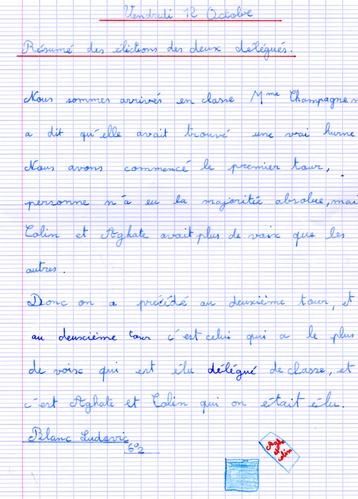 Vendredi 12 Octobre
Résumé des élections des deux délégués.
Nous sommes arrivés en classe Mme Champagne
a dit qu'elle avait trouvé une vrai hurne
Nous avons commencé le premier tour,
personne n'à eu la majorités absolue, mai
Colin et Aghate avait plus de voix que les
autres.
Donc on a précédé au deuxième tour, et
au deuxcième tour c'est celui qui a le plus
de voix qui est élu délégué de classe, et
c'est Aghate et Colin qui on était élu.
Blanc Ludovic
6e2